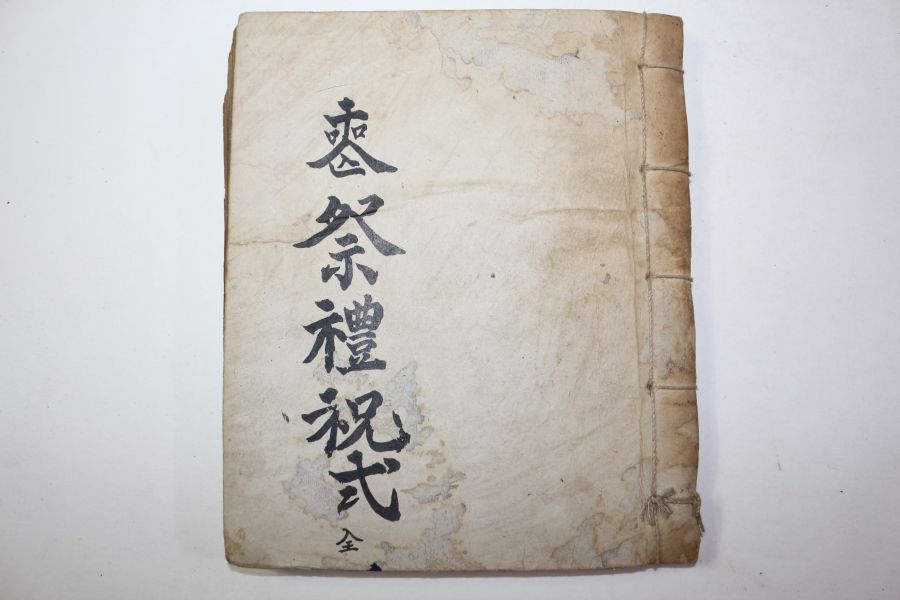 喪祭禮祝式 全